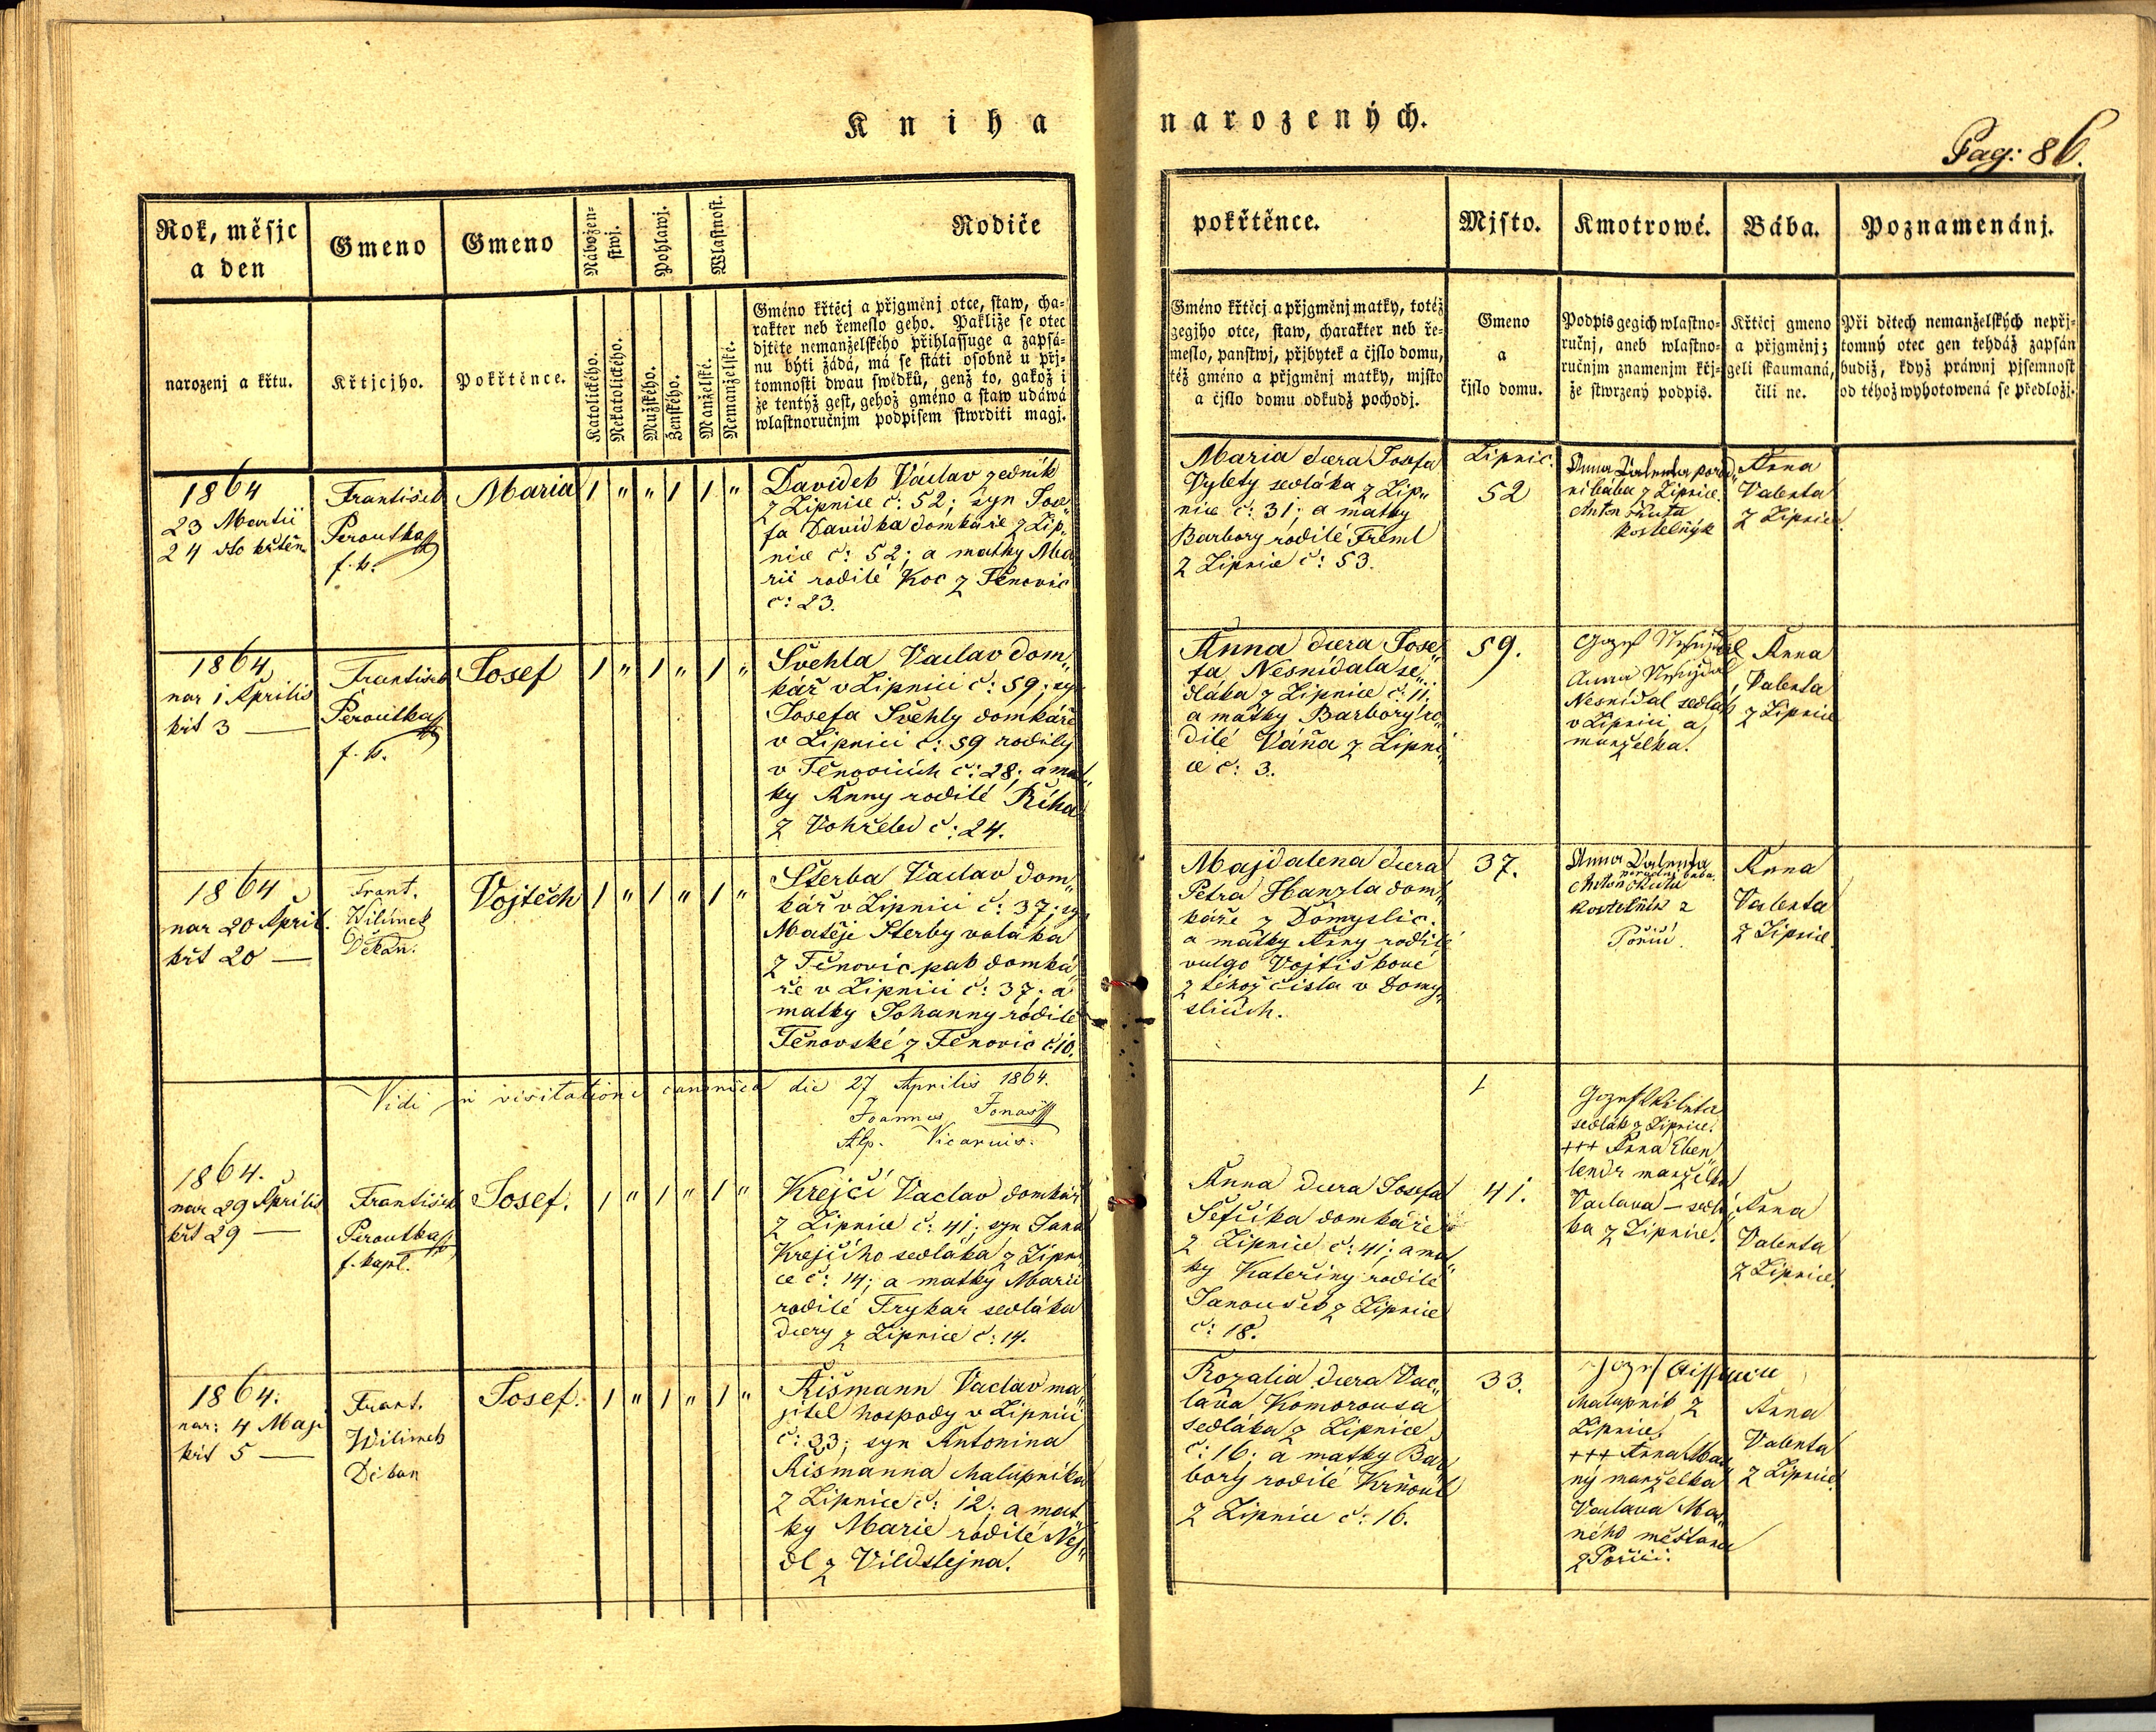 Kniha narozených.
Pag: 86.
Rok, měsjc
a den
Gmeno
Gmeno
Nábožen-
stwj.
Pohlawj.
Wlastnost.
Rodiče
pokřtěnce.
Mjsto.
Kmotrowé.
Bába.
Poznamenánj.
narozenj a křtu.
Křtjcjho.
Pokřtěnce.
Katolického.
Nekatolického.
Mužského.
Ženského.
Manželské.
Nemanželské.
Gméno křtěcj a přjgměnj otce, staw, cha-
rakter neb řemeslo geho. Pakliže se otec
djtěte nemanželského přihlassuge a zapsá-
nu býti žádá, má se státi osobně u přj-
tomnosti dwau swědků, genž to, gakož i
že tentýž gest, gehož gméno a staw udáwá
wlastnoručnjm podpisem stwrditi magj.
Gméno křtěcj a přjgměnj matky, totéž
gegjho otce, staw, charakter neb ře-
meslo, panstwj, přjbytek a čjslo domu,
též gméno a přjgměnj matky, mjsto
a čjslo domu odkudž pocházj.
Gmeno
a
čjslo domu.
Podpis gegich wlastno-
ručnj, aneb wlastno-
ručnjm znamenjm křj-
že stwrzený podpis.
Křtěcj gmeno
a přjgměnj;
geli skaumaná,
čili ne.
Při dětech nemanželských nepřj-
tomný otec gen tehdáž zapsán
budiž, když práwnj pjsemnost
od téhož wyhotowená se předložj.
1864
23 Martii
24 dto křtěn
František
Peroutka
f. k.
Maria
1 " " 1 1 "
Davidek Václav zedník
z Lipnice č: 52; syn Jose„
fa Davídka domkáře z Lip„
nice č: 52; a matky Ma
rie rodilé Koc z Těnovic
č: 23.
Maria dcera Josefa
Vylety sedláka z Lip„
nice č: 31; a matky
Barbory rodilé Freml
z Lipnice č: 53.
Lipnic.
52
Anna Valenta porod„
ní bába z Lipnice.
Anton
kostelnýk
Anna
Valenta
z Lipnice.
1864
nar 1 Aprilis
křt 3 —
František
Peroutka
f. k.
Josef
1 " 1 " 1 "
Švehla Vaclav dom„
kář v Lipnici č: 59; syn
Josefa Švehly domkáře
v Lipnici č: 59 rodilý
v Těnovicích č: 28; a mat„
ky Anny rodilé Říha
z Vohřeled č: 24.
Anna dcera Jose„
fa Nesnídala se„
dláka z Lipnice č: 11.
a matky Barbory ro„
dilé Váňa z Lipni„
ce č: 3.
59.
Nesnídal sedlák
v Lipnici a
manželka.
Anna
Valenta
z Lipnice
1864
nar 20 April.
křt 20 —
Frant.
Wilímek
Děkan.
Vojtěch
1 " 1 " 1 "
Šterba Vaclav dom„
kář v Lipnici č: 37; syn
Matěje Šterby
z Těnovic pak domká„
ře v Lipnici č: 37. a
matky Johanny rodilé
Těnovské z Těnovic č: 10.
Majdalena dcera
Petra Hanzla dom„
káře z Domyslic.
a matky Anny rodilé
vulgo Vojtiškové
z téhož čísla v Domy„
slicích.
37.
Anna Valenta
porodní bába.
Anton
kostelník z
Poříčí.
Anna
Valenta
z Lipnice.
Vidi in visitatione canonica die 27 Aprilis 1864.
Joannes Jonas
Vicarius.
1864.
nar 29 Aprilis
křt 29 —
František
Peroutka
f. kapl.
Josef.
1 " 1 " 1 "
Krejčí Vaclav domkář
z Lipnice č: 41; syn Jana
Krejčího sedláka z Lipni
ce č: 14; a matky Marie
rodilé Frykar sedláka
dcery z Lipnice č: 14.
Anna dcera Josefa
Šefčíka domkáře
z Lipnice č: 41; a mat„
ky Kateřiny rodilé
Janoušek z Lipnice
č: 18.
41.
sedlák z Lipnice.
+++ Anna Eben„
lendr manželka
Vaclava — sedlá„
ka z Lipnice.
Anna
Valenta
z Lipnice.
1864.
nar: 4 Maji
křt 5 —
Frant.
Wilimek
Děkan
Josef.
1 " 1 " 1 "
Aišmann Vaclav ma„
jitel hospody v Lipnici
č: 33; syn Antonina
Aismanna chalupníka
z Lipnice č: 12; a mat„
ky Marie rodilé Nej„
dl z Vildštejna.
Rozalia dcera Vac„
lava Komorousa
sedláka z Lipnice
č: 16; a matky Bar
bory rodilé Krňoul
z Lipnice č: 16.
33.
chalupník z
Lipnice.
+++ Anna Mar„
ný manželka
Vaclava Mar„
ného měšťana
z Poříčí.
Anna
Valenta
z Lipnice.